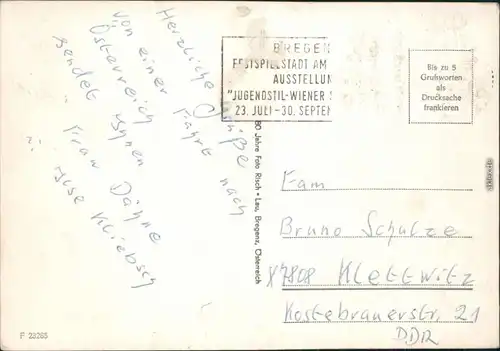 Herzliche Grüße
von einer Fahrt nach
Österreich
sendet Ihnen
Frau Dähne
Kliebsch
BREGEN
FESTSPIELSTADT AM
AUSSTELLUN
"JUGENDSTIL-WIENER
23. JULI-30. SEPTEM
Bis zu 5
Grußworten
als
Drucksache
frankieren
80 Jahre Foto Risch-Lau, Bregenz, Österreich
Fam
Bruno Schulze
X 7808 Klettwitz
Kostebrauerstr. 21
DDR
F 23265